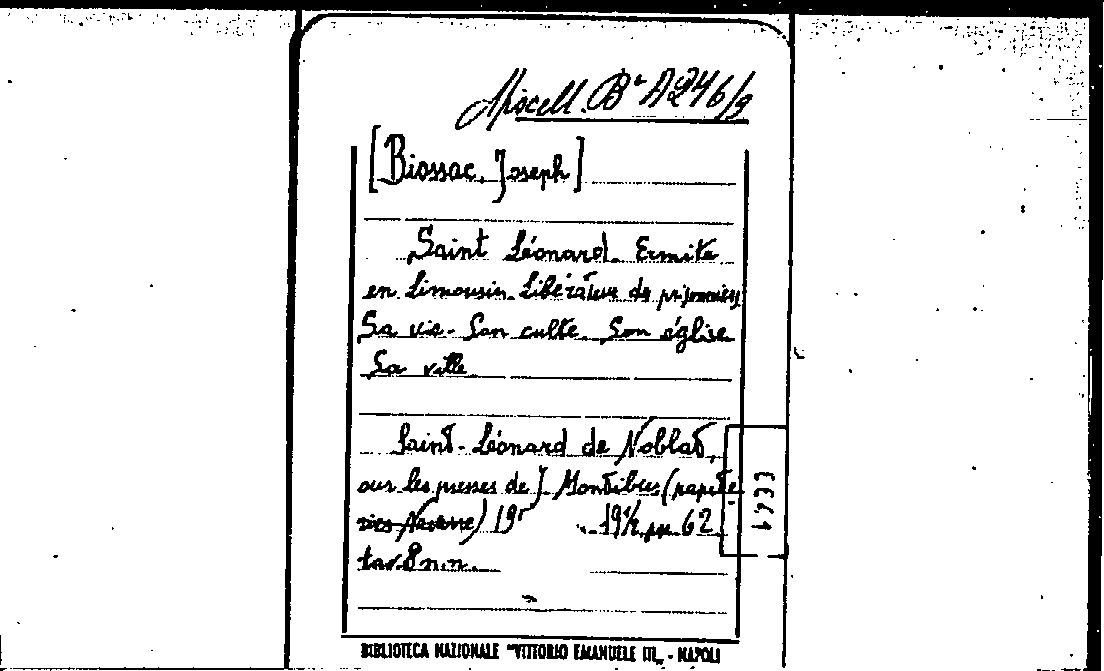 Miscell. Bª A246/9
[Biossac, Joseph]
Saint Léonard. Ermite
en Limousin. Libérateur de prisonniers
Sa vie. Son culte. Son église
Sa ville
Saint-Léonard de Noblat,
sur les presses de J. Montibus (papete
ries 19 19½ pp. 62
tav. 8 n.n.
BIBLIOTECA NAZIONALE "VITTORIO EMANUELE III„ - NAPOLI